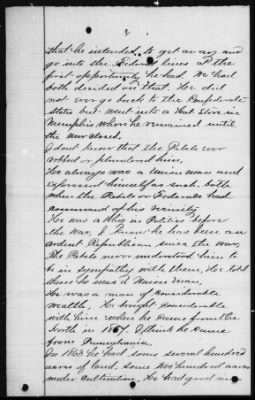 2
that he intended to get away and
go into the Federal lines at the
first opportunity he had. We had
both decided on that. He did
not ever go back to the Confederate
States but went into a Hat Store in
Memphis where he remained until
the war closed.
I dont know that the Rebels ever
robbed or plundered him.
He always was a Union man and
expressed himself as such, both
when the Rebels or Federals had
command of his vicinity.
He was a Whig in Politics before
the war, I know he has been an
ardent Republican since the war,
The Rebels never understood him to
be in sympathy with them, He told
them he was a Union man,
He was a man of considerable
wealth, He brought considerable
with him when he came from the
North in 1857. I think he came
from Pennsylvania.
In 1863 he had some several hundred
acres of land, some two hundred acres
under cultivation. He had good